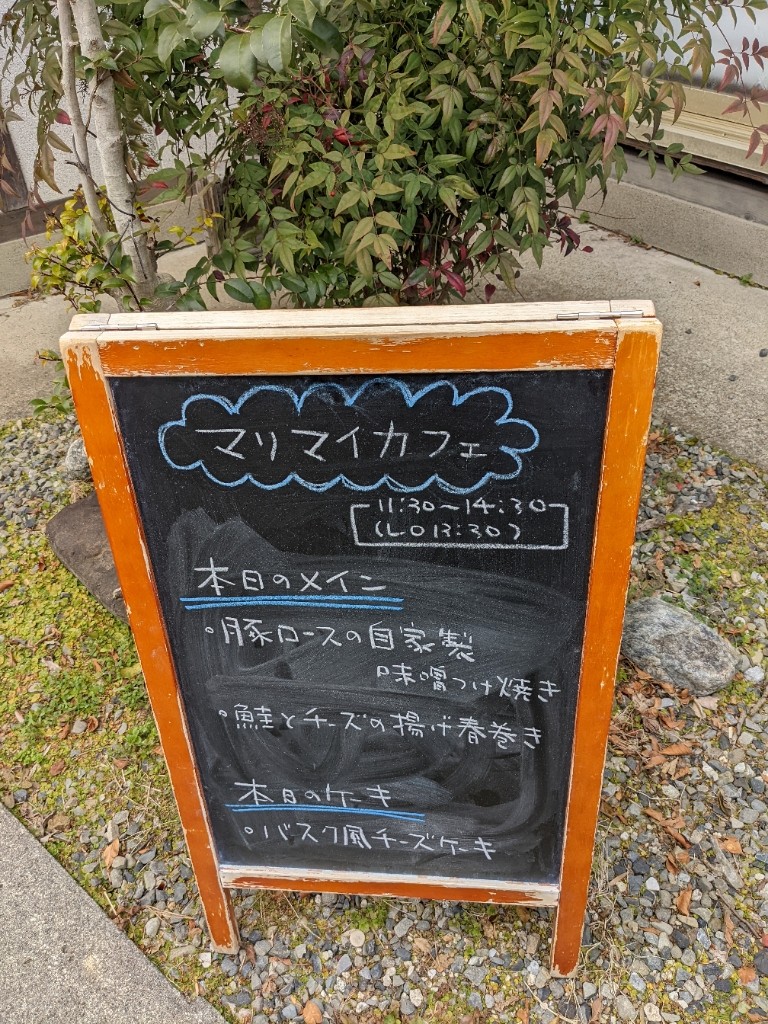 マリマイカフェ
11:30〜14:30
(L0 13:30)
本日のメイン
。豚ロースの自家製
味噌つけ焼き
。鮭とチーズの揚げ春巻き
本日のケーキ
。バスク風チーズケーキ